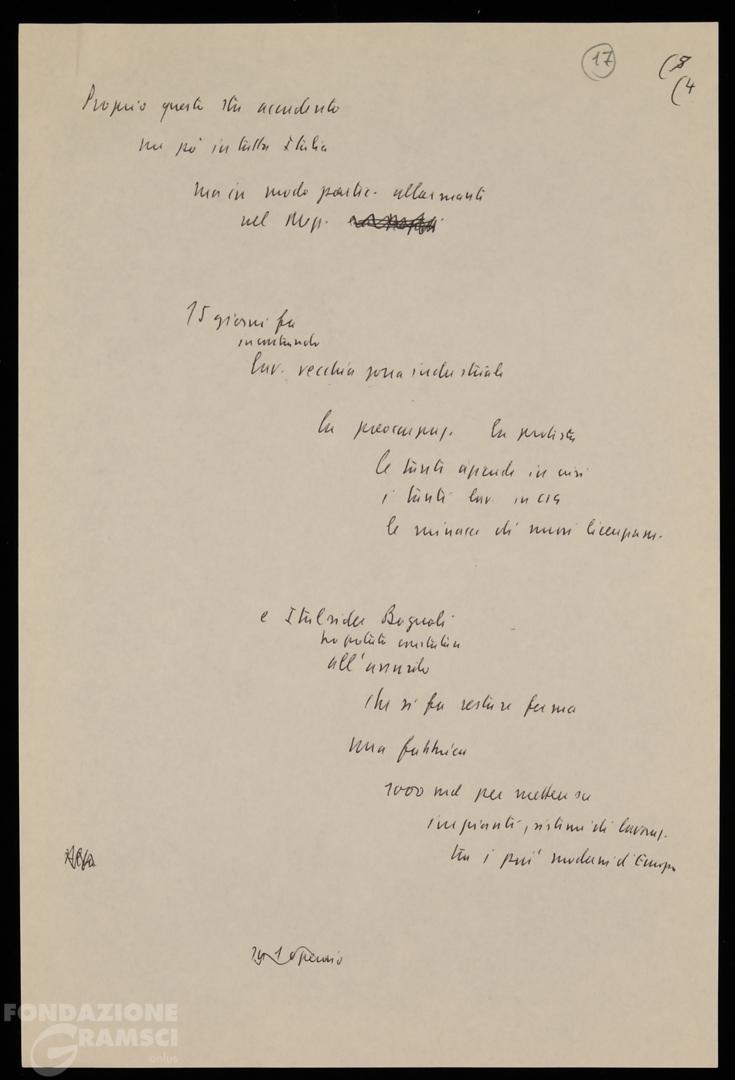 17
(8
(4
Proprio questo sta accadendo
un pò in tutta Italia
ma in modo partic. allarmante
nel Mzg.
15 giorni fa
incontrando
lav. vecchia zona industriale
la preoccupaz. la protesta
le tante aziende in crisi
i tanti lav. in CIG
le minacce di nuovi licenziam.
e Italsider Bagnoli
ho potuto constatare
all'assurdo
che si fa restare ferma
una fabbrica
1000 md per mettere su
impianti, sistemi di lavoraz.
tra i più moderni d'Europa
operaio
FONDAZIONE
GRAMSCI
onlus